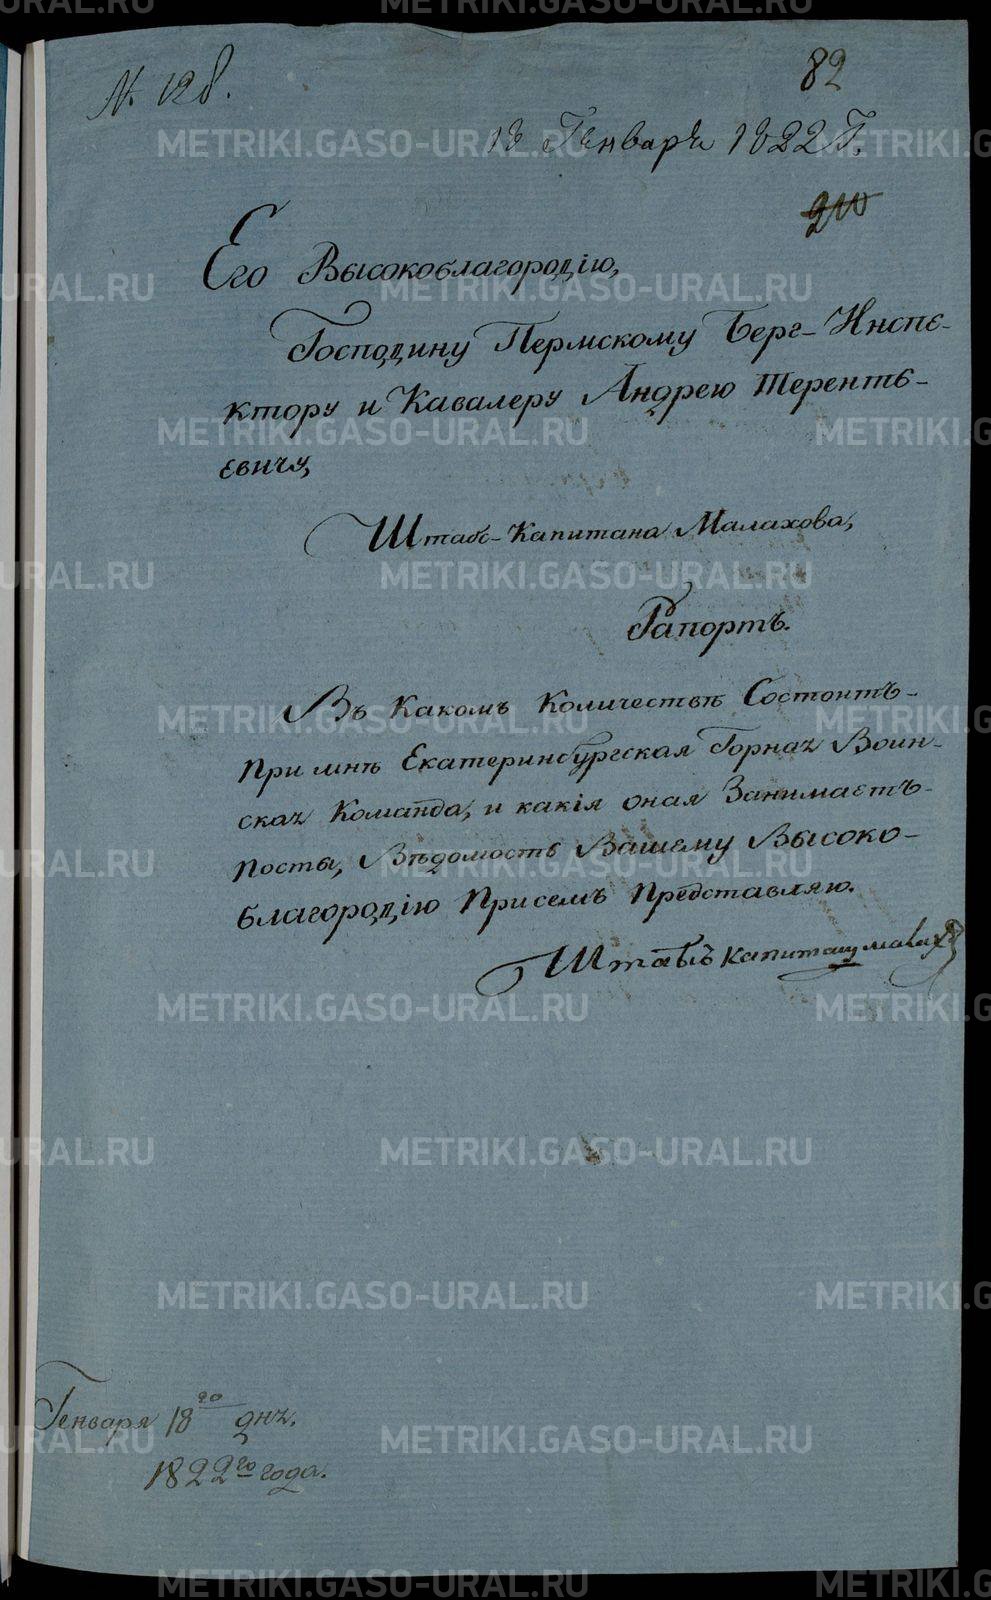 № 128.
82
18 Генваря 1822 Г.
210
Его Высокоблагородію,
Господину Пермскому Берг-Инспе-
ктору и Кавалеру Андрею Теренть-
евичу,
Штабс-Капитана Малахова,
Рапортъ.
Въ Какомъ Количествѣ Состоитъ-
При мнѣ Екатеринбургская Горная Воин-
ская Команда, и какія оная Занимаетъ-
Посты, Вѣдомость Вашему Высоко-
благородію Присемъ Представляю.
Штабсъ Капитанъ Малахов
Генваря 18го дня.
1822го года.
METRIKI.GASO-URAL.RU